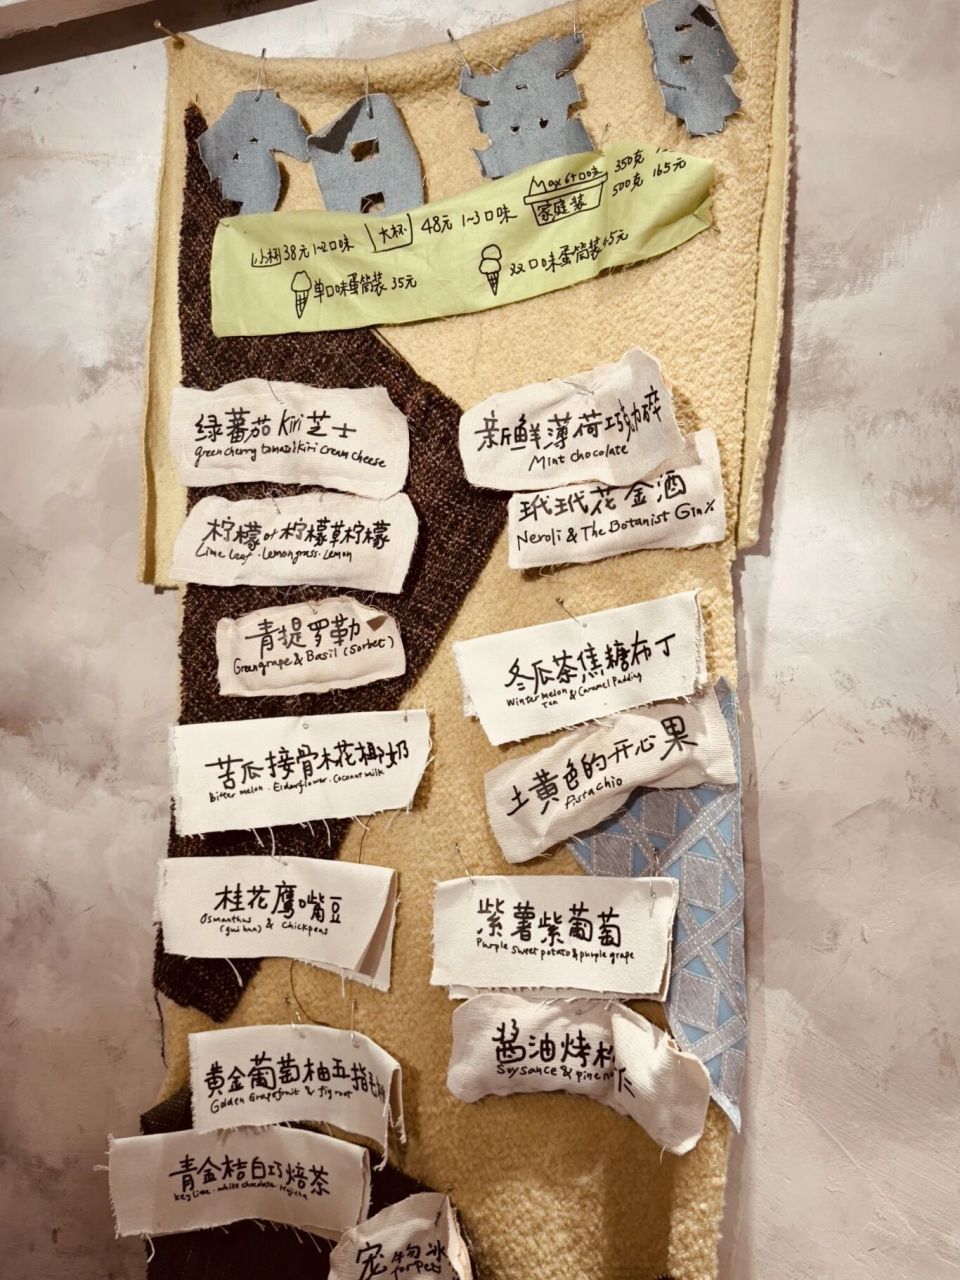 小杯 38元 1~2口味
大杯 48元 1~3口味
Max 6个口味
家庭装
350克
500克 165元
单口味蛋筒装 35元
双口味蛋筒装 45元
绿蕃茄 Kiri 芝士
green cherry tomato & Kiri cream cheese
柠檬or柠檬草柠檬
Lime leaf . Lemongrass . Lemon
青提罗勒
Green grape & Basil (Sorbet)
苦瓜接骨木花椰奶
Bitter melon . Elderflower . Coconut milk
桂花鹰嘴豆
Osmanthus
(gui hua) & Chickpeas
黄金葡萄柚五指毛
Golden Grapefruit & fig root
青金桔白巧焙茶
Key lime . white chocolate . Hojicha
宠物冰
for pets
新鲜薄荷巧克力碎
Mint chocolate
玳玳花金酒
Neroli & The Botanist Gin
冬瓜茶焦糖布丁
Winter melon & Caramel Pudding
Tea
土黄色的开心果
Pistachio
紫薯紫葡萄
Purple sweet potato & purple grape
酱油烤松仁
Soy sauce & pine